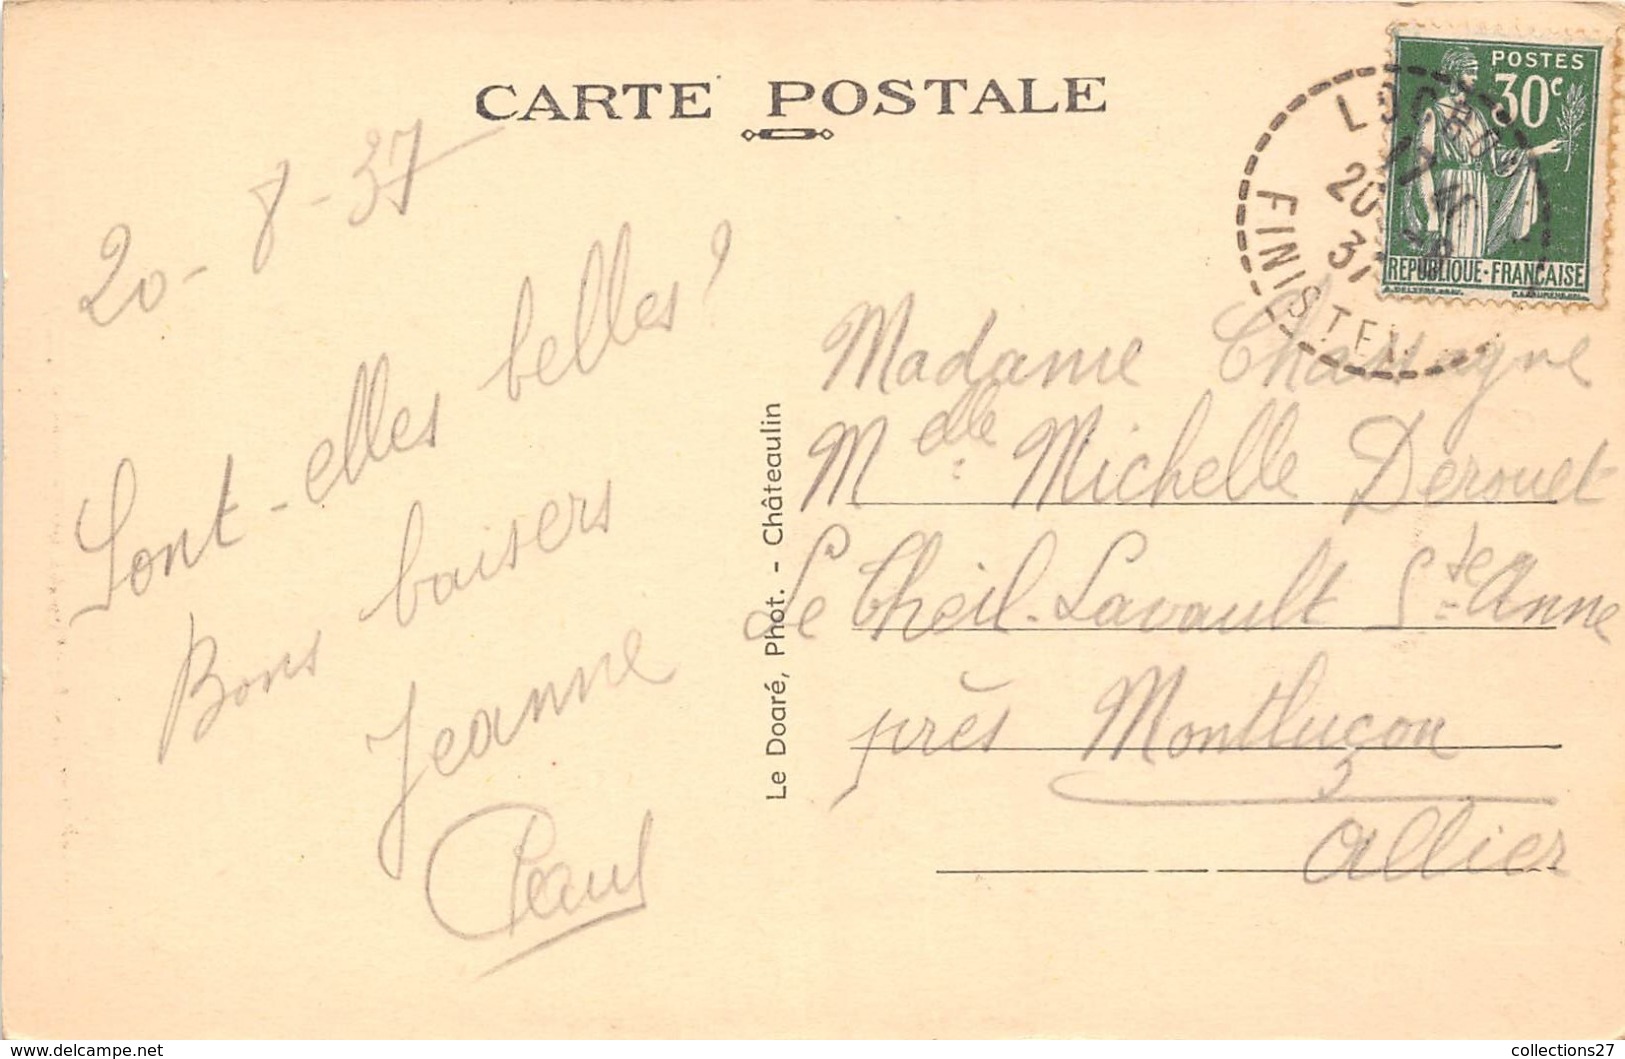 CARTE POSTALE
20-8-37
Sont-elles belles?
Bons baisers
Jeanne
Paul
Le Doaré, Phot. - Châteaulin
POSTES
30c
REPUBLIQUE-FRANÇAISE
20
37
FINISTE
Madame Chassagne
Mdelle Michelle Derouet
Le Theil-Lavault Ste Anne
près Montluçon
Allier
collections27